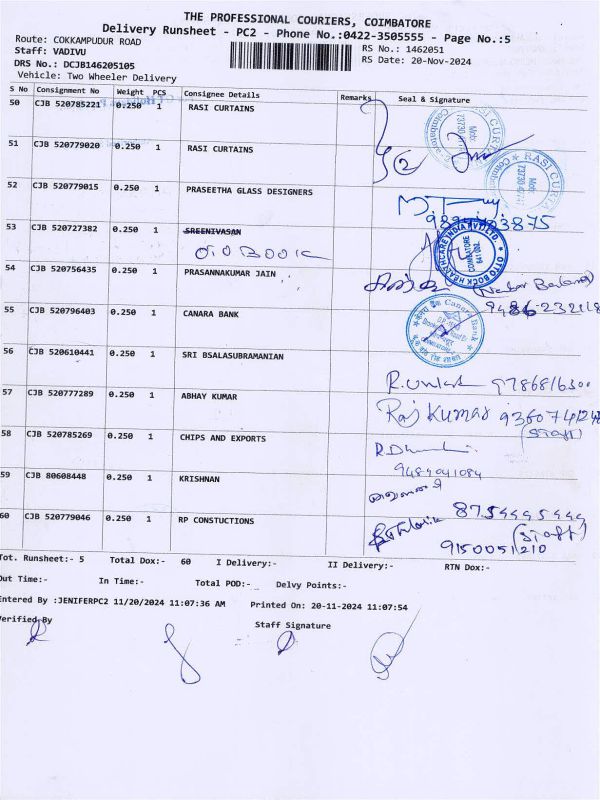 THE PROFESSIONAL COURIERS, COIMBATORE
Delivery Runsheet - PC2 - Phone No.:0422-3505555 - Page No.:5
Route: COKKAMPUDUR ROAD
RS No.: 1462051
Staff: VADIVU
RS Date: 20-Nov-2024
DRS No.: DCJB146205105
Vehicle: Two Wheeler Delivery
S No Consignment No Weight PCS Consignee Details Remarks Seal & Signature
50 CJB 520785221 0.250 1 RASI CURTAINS
51 CJB 520779020 0.250 1 RASI CURTAINS
RASI CURTA
52 CJB 520779015 0.250 1 PRASEETHA GLASS DESIGNERS
53 CJB 520727382 0.250 1 SREENIVASAN
OTTO BOCK HEALTHCARE INDIA PVT LTD
COIMBATORE
641 002
54 CJB 520756435 0.250 1 PRASANNAKUMAR JAIN
55 CJB 520796403 0.250 1 CANARA BANK
Canara Bank
56 CJB 520610441 0.250 1 SRI BSALASUBRAMANIAN
9786816300
57 CJB 520777289 0.250 1 ABHAY KUMAR
Raj Kumar
58 CJB 520785269 0.250 1 CHIPS AND EXPORTS
(Staff)
9489041084
59 CJB 80608448 0.250 1 KRISHNAN
60 CJB 520779046 0.250 1 RP CONSTUCTIONS
(Staff)
9150051210
Tot. Runsheet:- 5 Total Dox:- 60 I Delivery:- II Delivery:- RTN Dox:-
Out Time:- In Time:- Total POD:- Delvy Points:-
Entered By :JENIFERPC2 11/20/2024 11:07:36 AM Printed On: 20-11-2024 11:07:54
Verified By Staff Signature